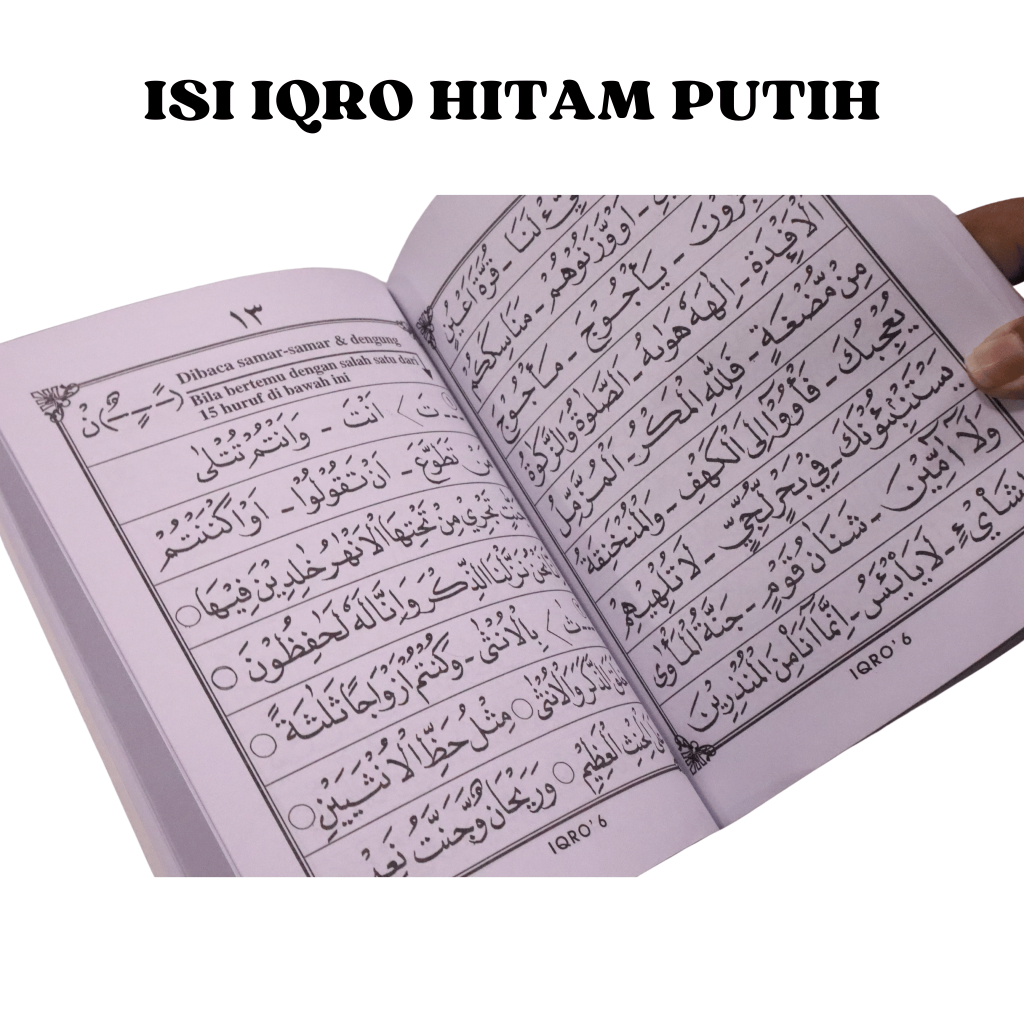 ISI IQRO HITAM PUTIH
١٣
Dibaca samar-samar & dengung
Bila bertemu dengan salah satu dari
15 huruf di bawah ini
اَنْتَ - وَاَنْتُمْ تُتْلٰى
تَطَوَّعَ - اَنْ تَقُوْلُوْا - اَوْ اَكْنَنْتُمْ
تَجْرِيْ مِنْ تَحْتِهَا الْاَنْهٰرُ خٰلِدِيْنَ فِيْهَا
نَزَّلْنَا الذِّكْرَ وَاِنَّا لَهٗ لَحٰفِظُوْنَ
بِالْاُنْثٰى - وَكُنْتُمْ اَزْوَاجًا ثَلٰثَةً
الذَّكَرَ وَالْاُنْثٰى مِثْلُ حَظِّ الْاُنْثَيَيْنِ
الْعَظِيْمِ وَرَيْحَانٌ وَّجَنَّتُ نَعِيْ
IQRO' 6
لَنَا - قُرَّةَ اَعْيُنٍ
اَوْ وَّزَنُوْهُمْ - مَنَاسِكَكُمْ
يَأْجُوْجَ - مَأْجُوْجَ
اِلٰهَهٗ هَوٰىهُ - الصَّلٰوةَ وَالزَّكٰوةَ
مِنْ مُّضْغَةٍ - فَلِلّٰهِ الْمَكْرُ - الْمُزَّمِّلُ
يُعْجِبُكَ - فَأْوٗٓا اِلَى الْكَهْفِ - وَالْمُنْخَنِقَةُ
يَسْتَنْبِـُٔوْنَكَ - فِيْ بَحْرٍ لُّجِّيٍّ - لَا تُلْهِيْهِمْ
وَلَآ اٰۤمِّيْنَ - شَنَاٰنُ قَوْمٍ - جَنَّةُ الْمَأْوٰى
لِشَا۟يْءٍ - لَا يَا۟يْـَٔسُ - اِنَّمَآ اَنَا مِنَ الْمُنْذِرِيْنَ
IQRO' 6